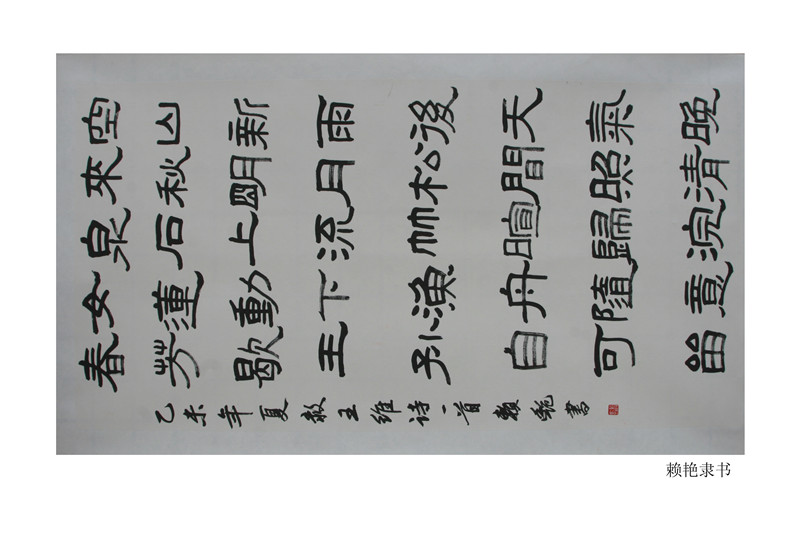 空山新雨後天氣晚
來秋明月松間照清
泉石上流竹喧歸浣
女蓮動下漁舟隨意
春芳歇王孙自可留
乙未年夏 王维诗一首賴艳書
赖艳隶书